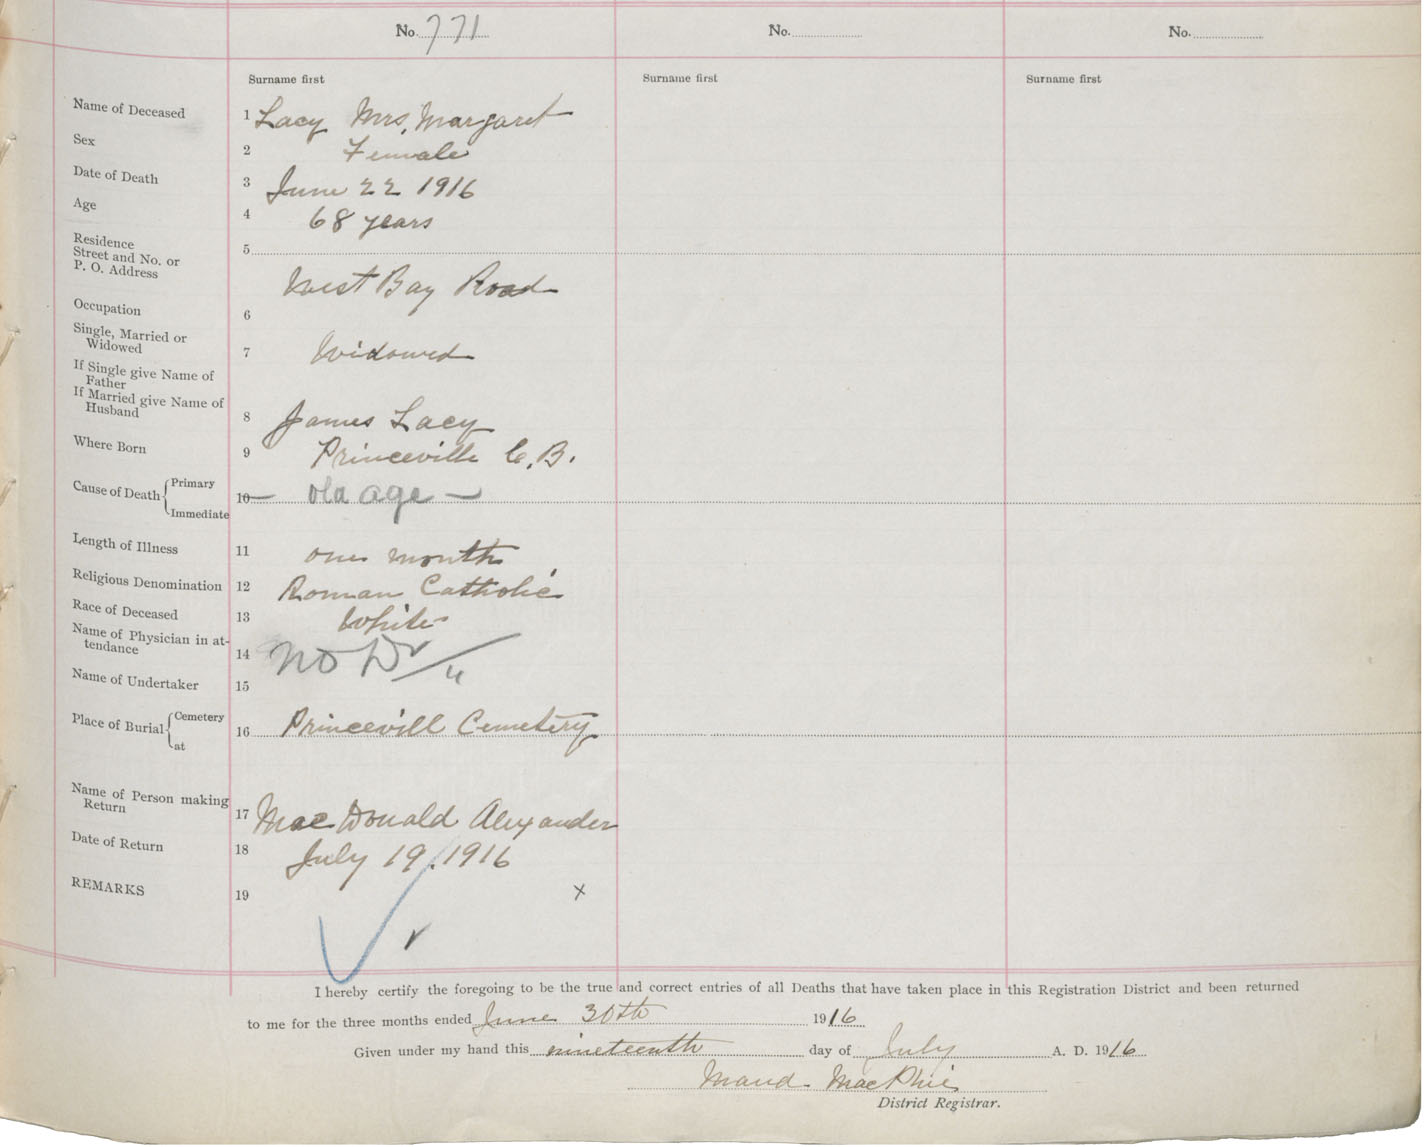 No. 771 No. No.
Surname first Surname first Surname first
Name of Deceased 1 Lacy Mrs. Margaret
Sex 2 Female
Date of Death 3 June 22 1916
Age 4 68 years
Residence
Street and No. or 5
P. O. Address West Bay Road
Occupation 6
Single, Married or
Widowed 7 Widowed
If Single give Name of
Father
If Married give Name of
Husband 8 James Lacy
Where Born 9 Princeville C.B.
Cause of Death { Primary
10 — old age —
Immediate
Length of Illness 11 one month
Religious Denomination 12 Roman Catholic
Race of Deceased 13 White
Name of Physician in at-
tendance 14 No Dr
Name of Undertaker 15
Place of Burial { Cemetery
16 Princevill Cemetery
at
Name of Person making
Return 17 MacDonald Alexander
Date of Return 18 July 19. 1916
REMARKS 19 x
I hereby certify the foregoing to be the true and correct entries of all Deaths that have taken place in this Registration District and been returned
to me for the three months ended June 30th 1916
Given under my hand this nineteenth day of July A. D. 1916
Maud MacPhie
District Registrar.